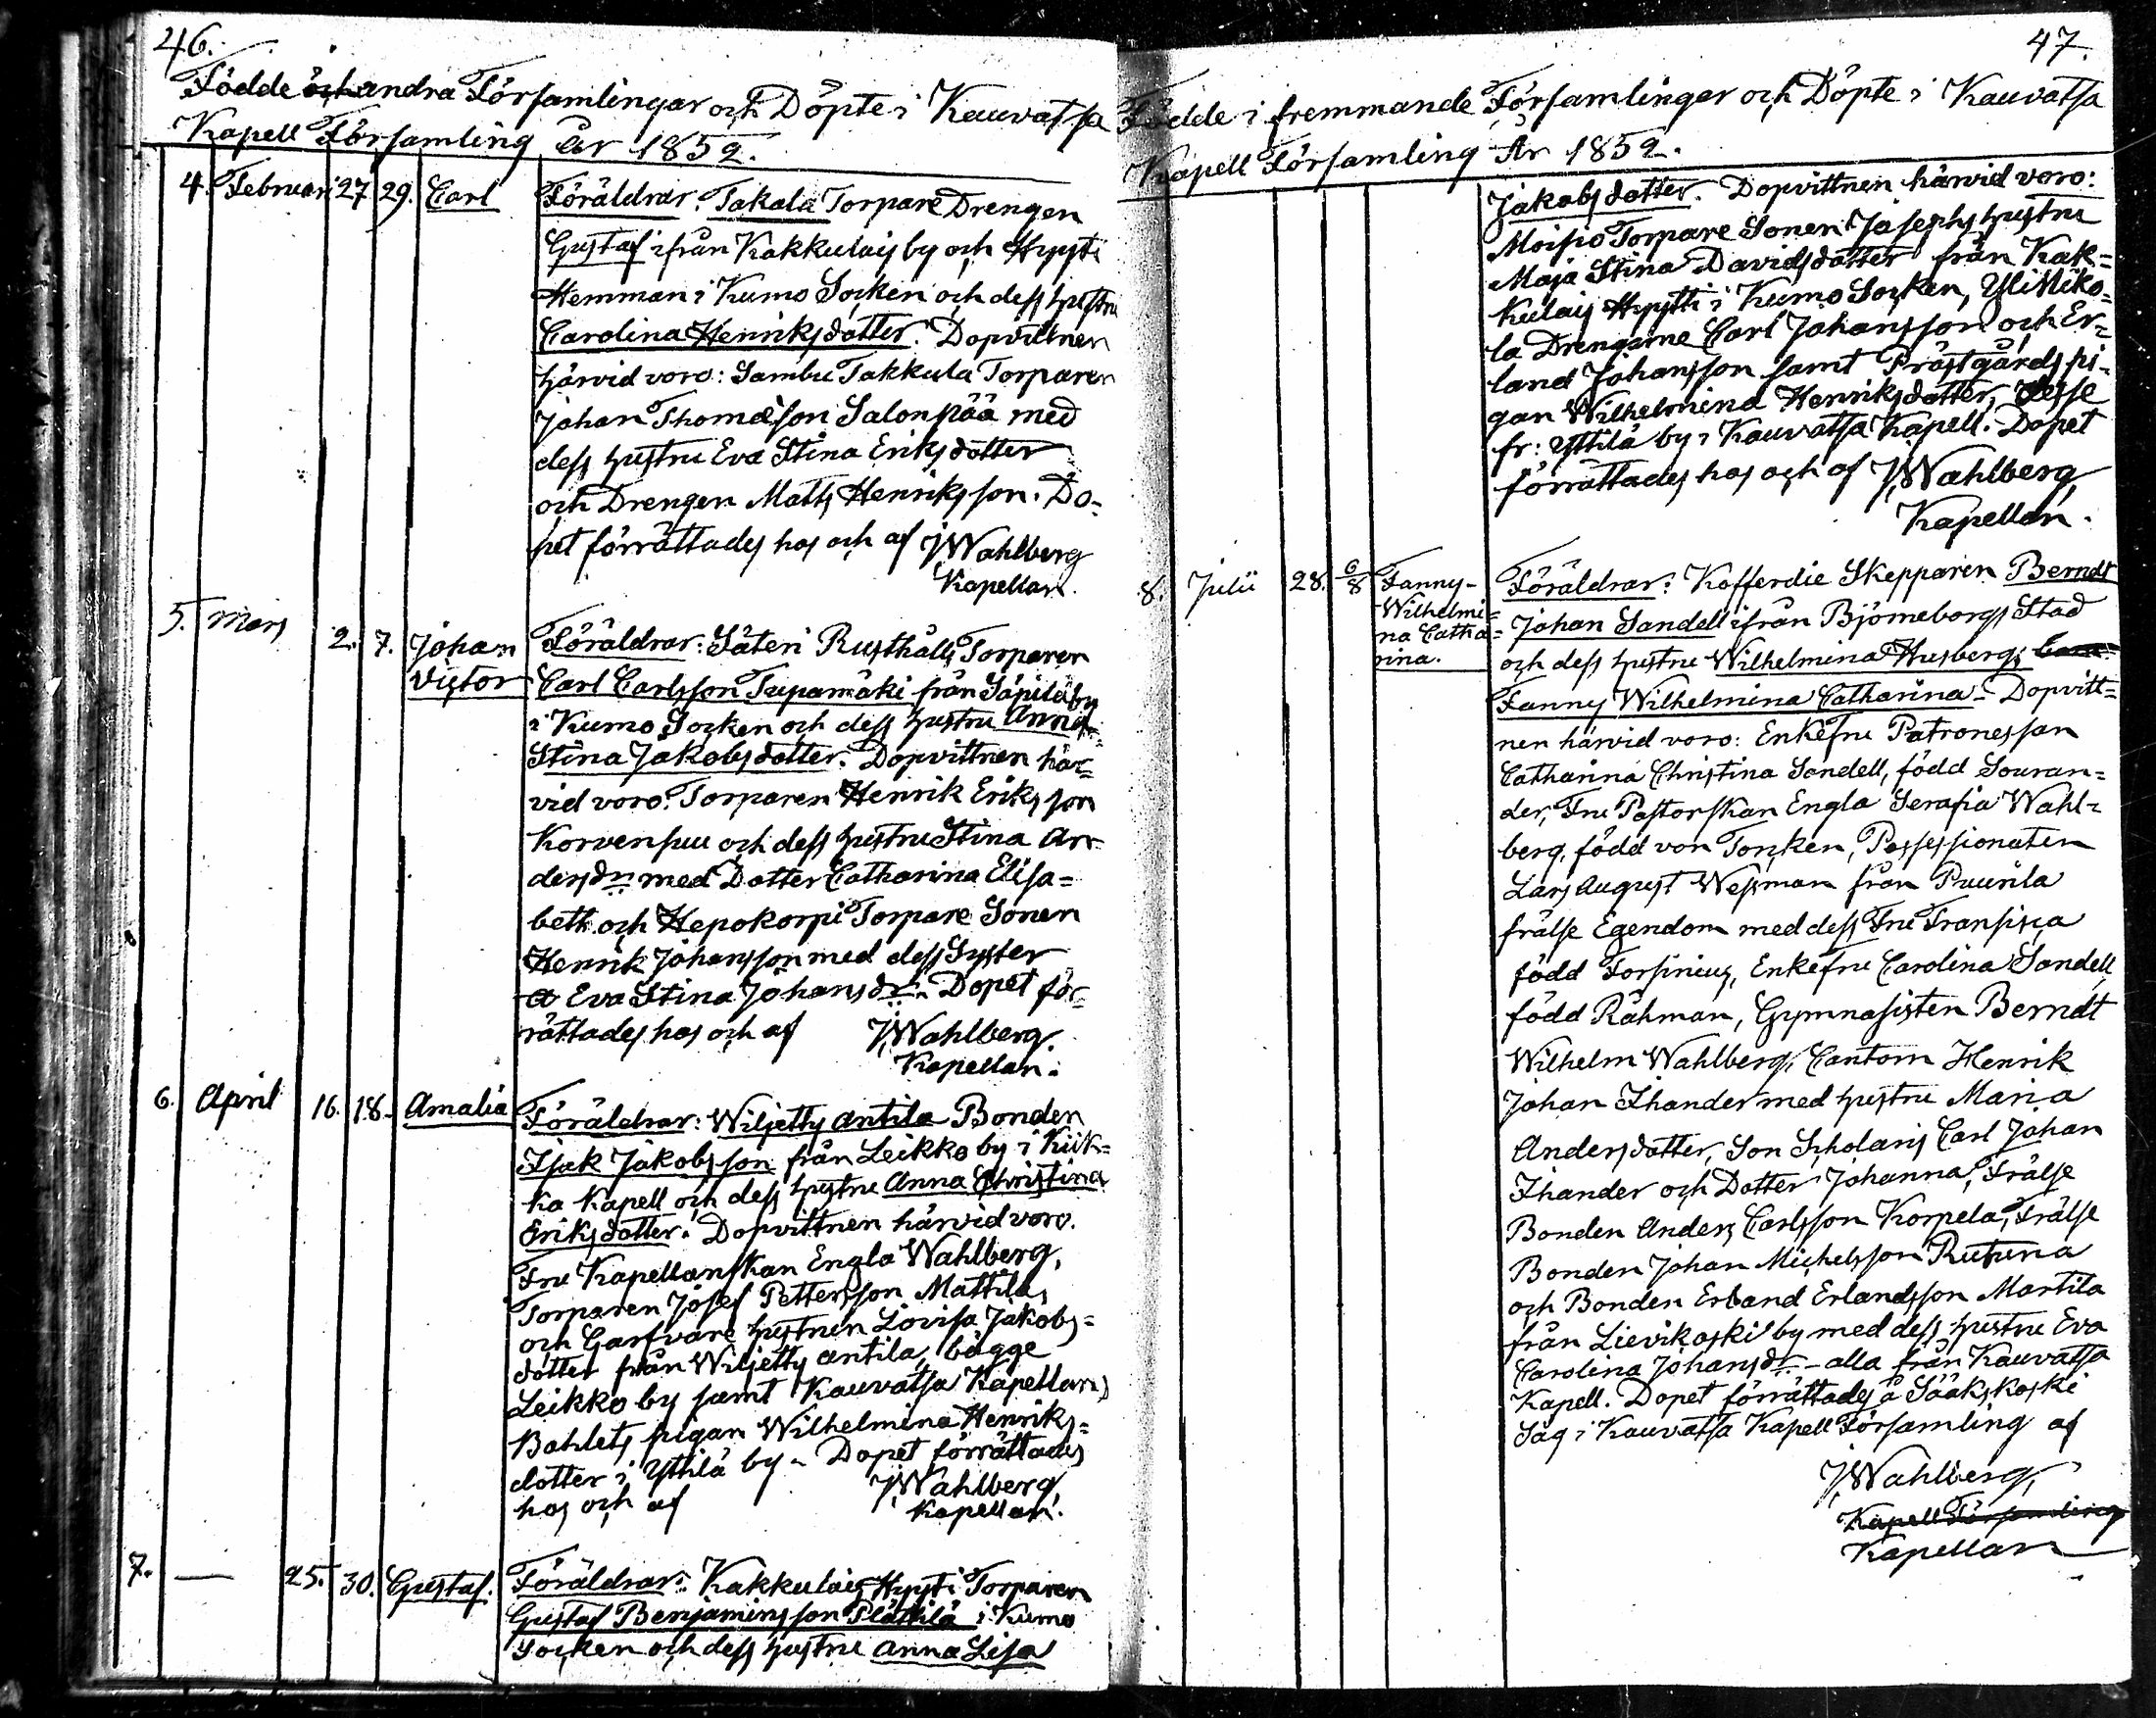 46.
Födde i andra Församlingar och Döpte i Kauvatsa
Kapell Församling År 1852.
4. Februari 27 29. Carl
Föräldrar: Takala Torpare Drengen
Gustaf ifrån Kakkulais by och Hyysti
Hemman i Kumo Socken och dess hustru
Carolina Henriksdotter. Dopvittnen
härvid voro: Sambu Takkula Torparen
Johan Thomasson Salonpää med
dess hustru Eva Stina Eriksdotter
och Drengen Matts Henriksson. Do-
pet förrättades hos och af J. Wahlberg
Kapellan.
5. Mars 2. 7. Johan
Victor
Föräldrar: Säteri Rusthålls Torparen
Carl Carlsson Tupamäki från Säpilä by
i Kumo Socken och dess hustru Anna
Stina Jakobsdotter. Dopvittnen här-
vid voro: Torparen Henrik Eriksson
Korvenpuu och dess hustru Stina An-
dersdr med Dotter Catharina Elisa=
beth och Hepokorpi Torpare Sonen
Henrik Johansson med dess Syster
Eva Stina Johansdr. Dopet för-
rättades hos och af J. Wahlberg.
Kapellan.
6. April 16. 18. Amalia
Föräldrar: Wiljetty Antila Bonden
Isak Jakobsson från Leikko by i Kiik=
ka Kapell och dess hustru Anna Christina
Eriksdotter. Dopvittnen härvid voro.
Fru Kapellanskan Engla Wahlberg,
Torparen Josef Pettersson Mattila,
och Garfvare hustrun Lovisa Jakobs=
dotter från Wiljetty Antila, bägge
Leikko by samt Kauvatsa Kapellans
Bohlets pigan Wilhelmina Henriks=
dotter i Yttilä by. Dopet förrättades
hos och af J. Wahlberg,
Kapellan.
7. — 25. 30. Gustaf.
Föräldrar: Kakkulais Hyysti Torparen
Gustaf Benjaminsson Plättilä i Kumo
Socken och dess hustru Anna Lisa
47.
Födde i fremmande Församlingar och Döpte i Kauvatsa
Kapell Församling År 1852.
Jakobsdotter. Dopvittnen härvid voro:
Moisio Torpare Sonen Josephs hustru
Maja Stina Davidsdotter från Kak=
kulais Hyysti i Kumo Socken, Yli Niko=
la Drengarne Carl Johansson och Er=
land Johansson samt Prästgårds pi-
gan Wilhelmina Henriksdotter, desse
fr: Yttilä by i Kauvatsa Kapell. Dopet
förrättades hos och af J. Wahlberg,
Kapellan.
8. Julii 28. 6/8 Fanny-
Wilhelmi=
na Catha=
rina.
Föräldrar: Kofferdie Skepparen Berndt
Johan Sandell ifrån Björneborgs Stad
och dess hustru Wilhelmina Husberg;
Fanny Wilhelmina Catharina. Dopvitt=
nen härvid voro: Enkefru Patronessan
Catharina Christina Sandell, född Souran=
der, Fru Pastorskan Engla Serafia Wahl=
berg, född von Torcken, Possessionaten
Lars August Wessman från Puurila
frälse Egendom med dess Fru Fransisca
född Forsinius, Enkefru Carolina Sandell,
född Råhman, Gymnasisten Berndt
Wilhelm Wahlberg, Cantorn Henrik
Johan Ihander med hustru Maria
Andersdotter, Son Scholaris Carl Johan
Ihander och Dotter Johanna, Frälse
Bonden Anders Carlsson Korpela, Frälse
Bonden Johan Michelsson Rutuna
och Bonden Erland Erlandsson Martila
från Lievikoski by med dess hustru Eva
Carolina Johansdr - alla från Kauvatsa
Kapell. Dopet förrättades å Sääkskoski
Såg i Kauvatsa Kapell Församling af
J. Wahlberg,
Kapell Församling
Kapellan